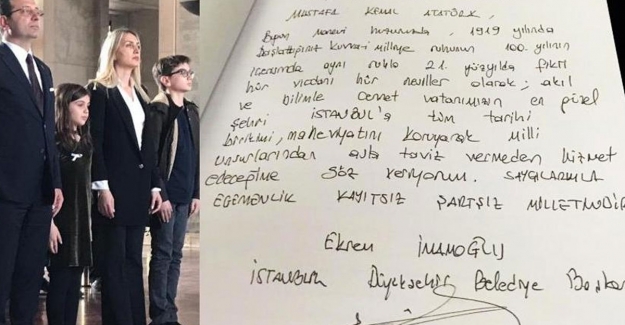 MUSTAFA KEMAL ATATÜRK,
manevi huzurunda, 1919 yılında
Başlattığınız kuvvayi milliye ruhunun 100. yılının
içerisinde aynı ruhla 21. yüzyılda fikri
hür vicdanı hür nesiller olarak; akıl
ve bilimle cennet vatanımızın en güzel
şehri İSTANBUL'a tüm tarihi
birikimi, maneviyatını koruyarak milli
unsurlarından asla taviz vermeden hizmet
edeceğime söz veriyorum. SAYGILARIMLA
EGEMENLİK KAYITSIZ ŞARTSIZ MİLLETİNDİR
Ekrem İMAMOĞLU
İSTANBUL Büyükşehir Belediye Başkan